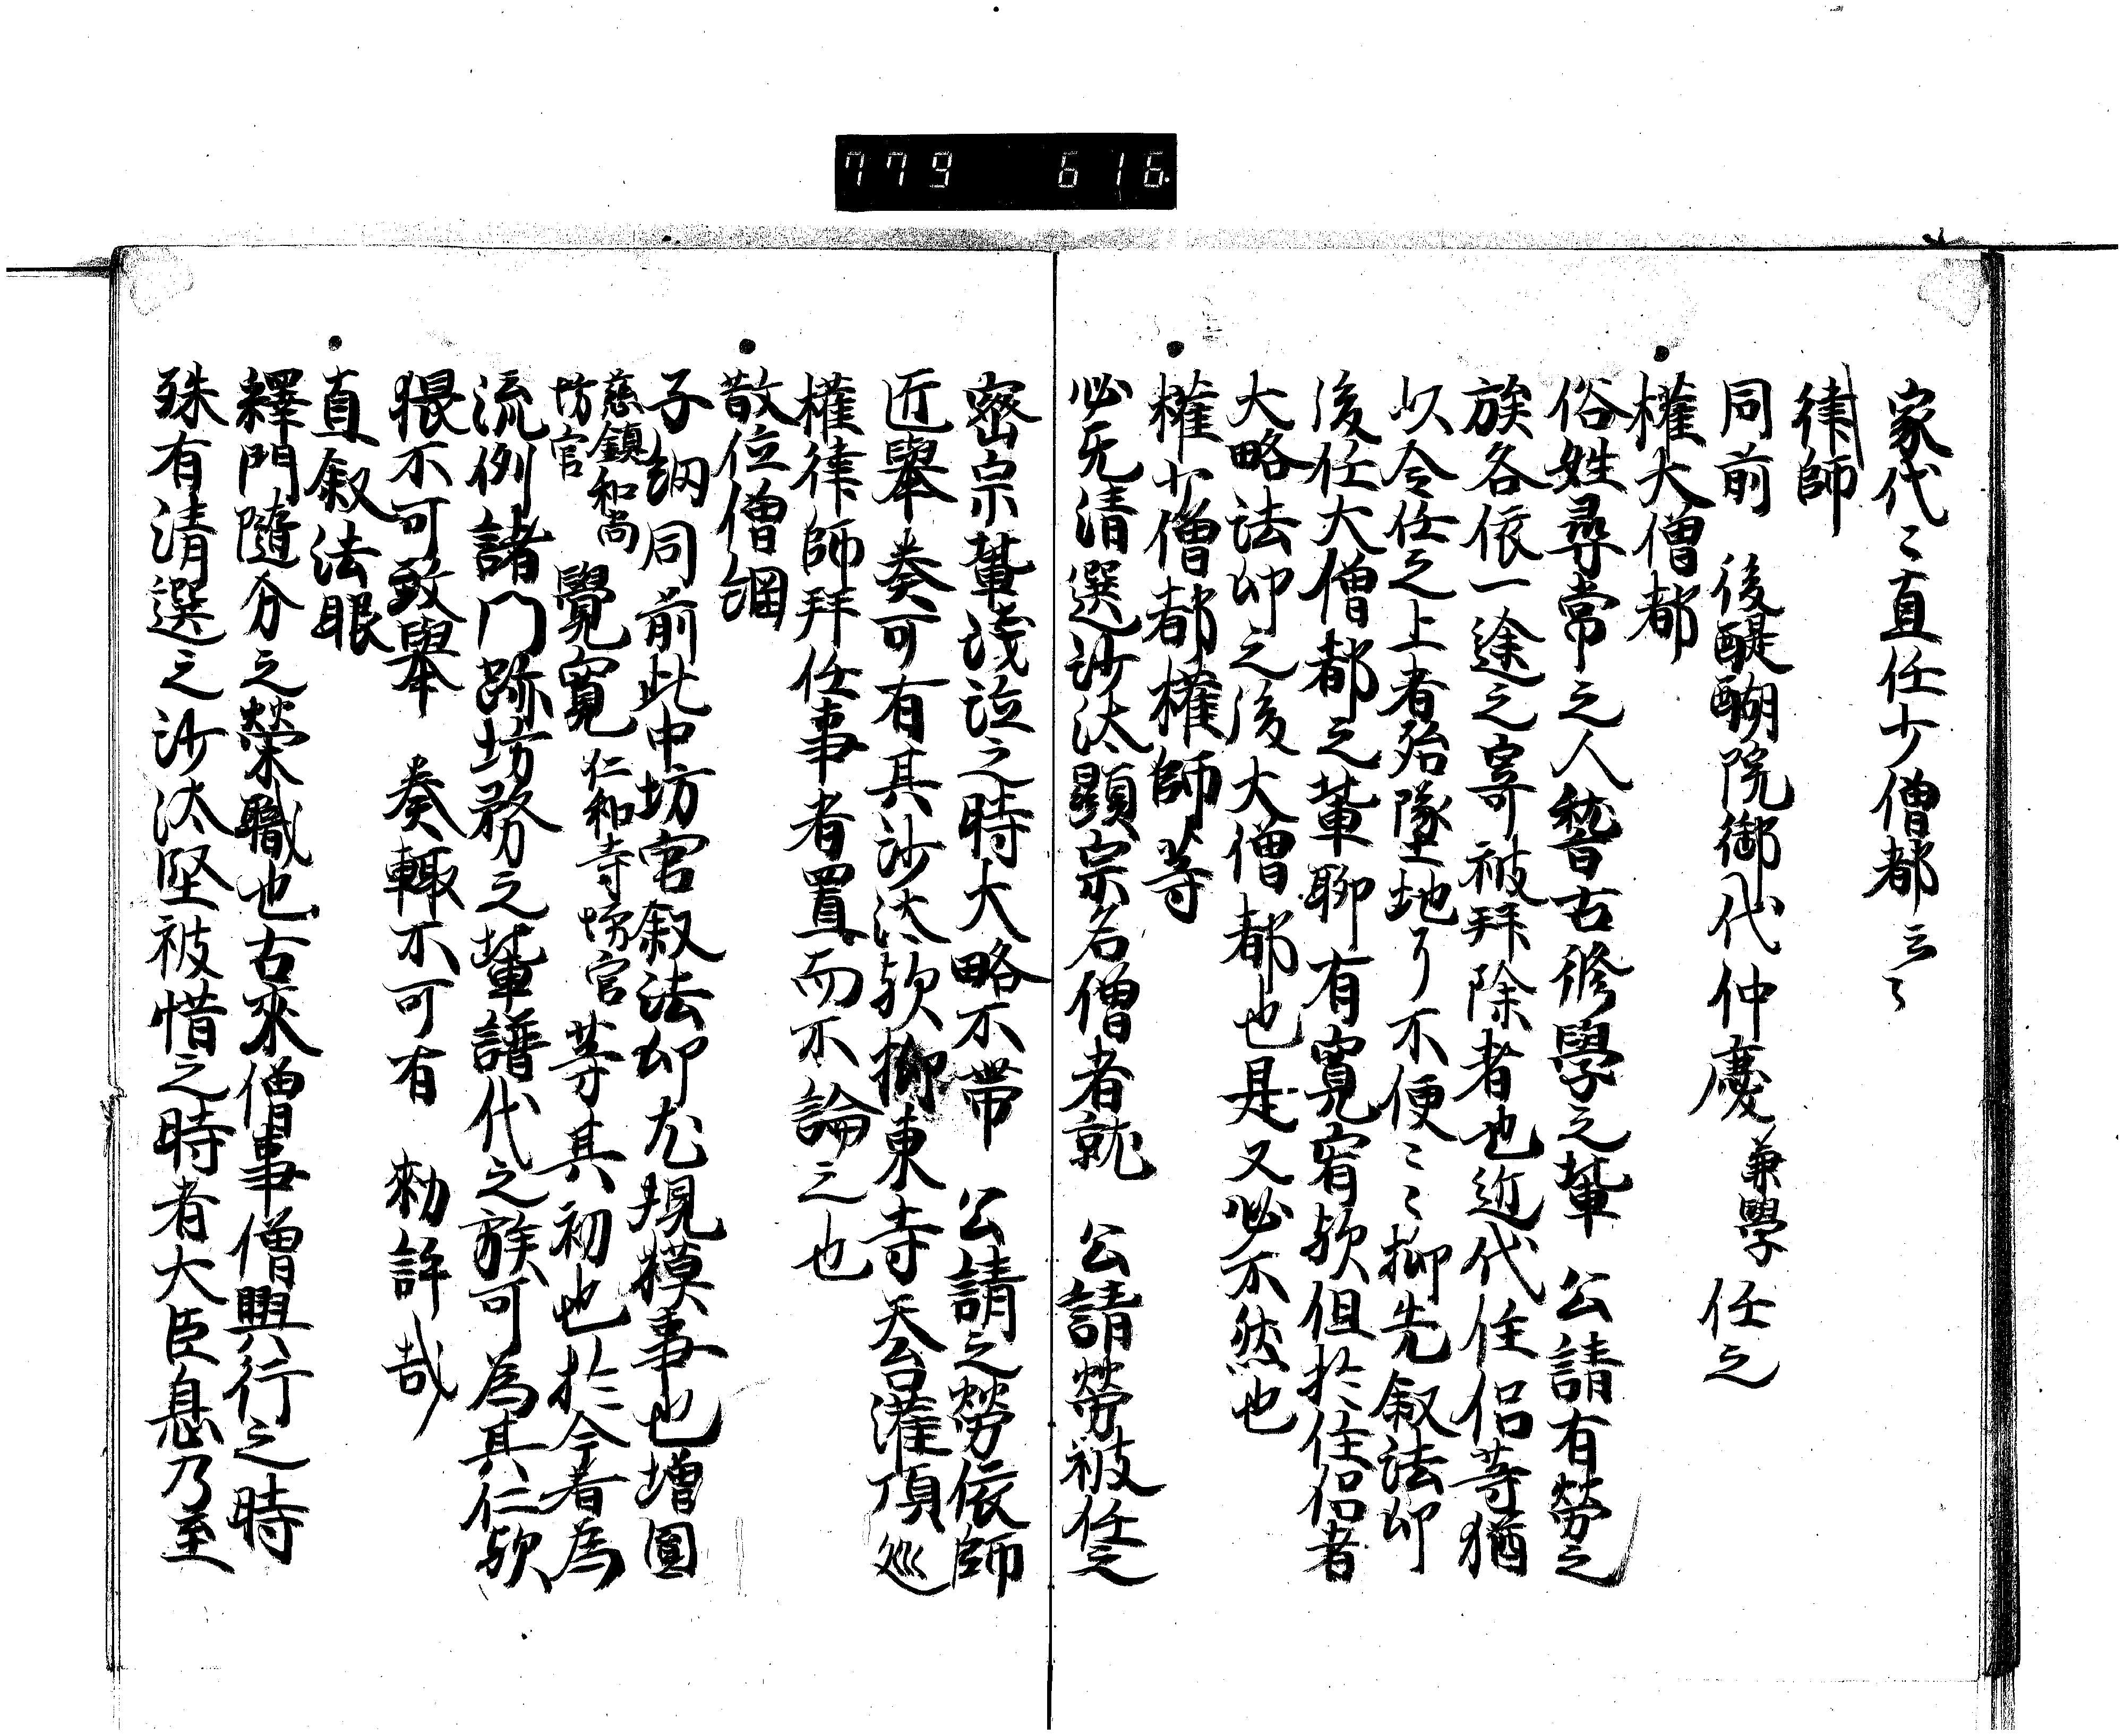 779 616
家代〻直任少僧都云々
律師
同前 後醍醐院御代仲慶兼學任之
權大僧都
俗姓尋常之人稽古修學之輩 公請有勞之
族各依一途之寄被拜除者也近代住侶等猶
以令任之上者殆墜地了不便〻〻抑先叙法印
後任大僧都之輩聊有寛宥歟但於住侶者
大略法印之後大僧都也是又必不然也
權少僧都權師等
必旡清選沙汰顕宗名僧者就 公請勞被任之
密宗輩淺﨟之時大略不帶 公請之勞依師
匠舉奏可有其沙汰歟抑東寺天台灌頂巡
權律師拜任事者置而不論之也
散位僧綱
子細同前此中坊官叙法印尤規模事也増圓
慈鎮和尚坊官 覺寛仁和寺坊官等其初也於今者為
流例諸門跡坊務之輩譜代之族可為其仁歟
猥不可致舉 奏輙不可有 勅許哉
直叙法眼
釋門隨分之榮職也古來僧事僧興行之時
殊有清選之沙汰堅被惜之時者大臣息乃至